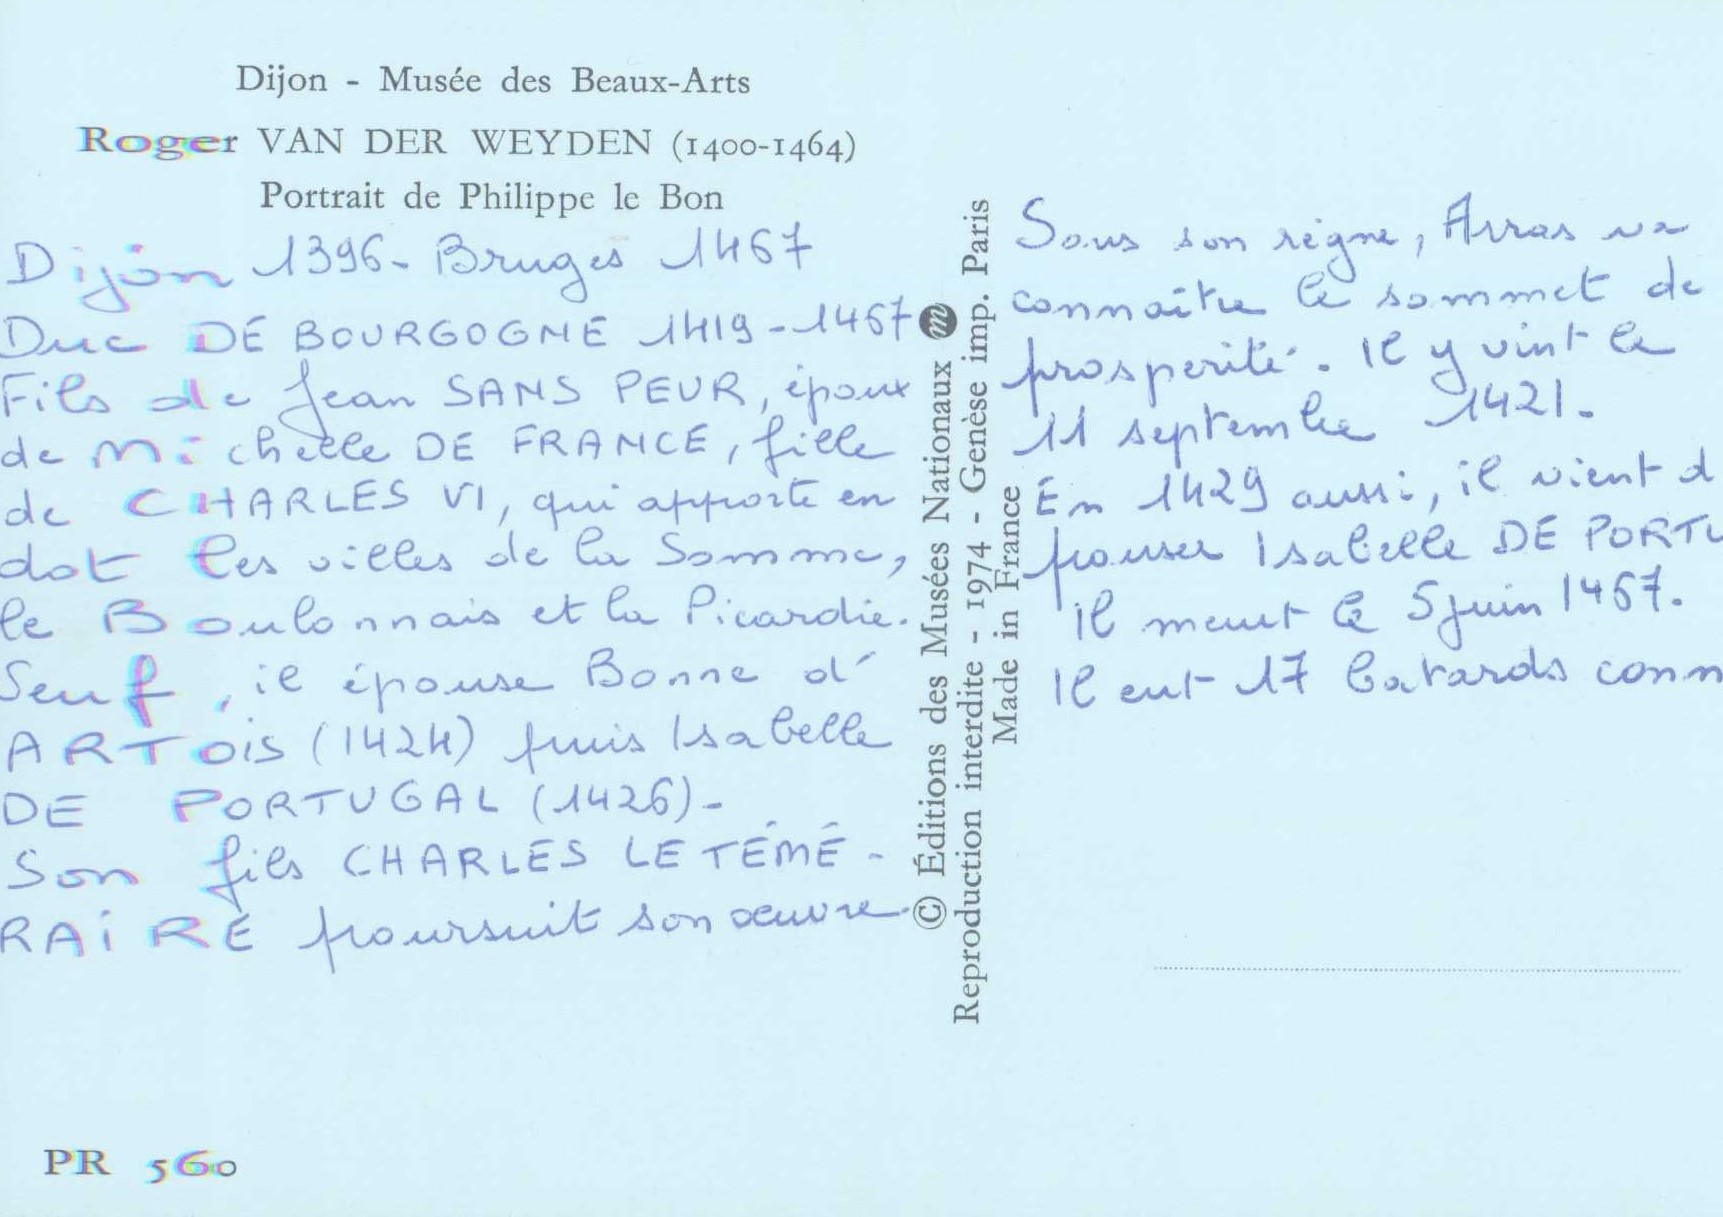 Dijon - Musée des Beaux-Arts
Roger VAN DER WEYDEN (1400-1464)
Portrait de Philippe le Bon
Dijon 1396 - Bruges 1467
Duc DE BOURGOGNE 1419 - 1467
Fils de Jean SANS PEUR, époux
de Michelle DE FRANCE, fille
de CHARLES VI, qui apporte en
dot les villes de la Somme,
le Boulonnais et la Picardie.
Seuf, il épouse Bonne d'
ARTOIS (1424) puis Isabelle
DE PORTUGAL (1426) -
Son fils CHARLES LE TÉMÉ -
RAIRE poursuit son œuvre.
© Éditions des Musées Nationaux m
Reproduction interdite - 1974 - Genèse imp. Paris
Made in France
Sous son règne, Arras va
connaître le sommet de
prosperité. Il y vint le
11 septembre 1421.
En 1429 aussi, il vient d
épouser Isabelle DE PORTU
Il meurt le 5 juin 1467.
Il eut 17 batards conn
PR 560